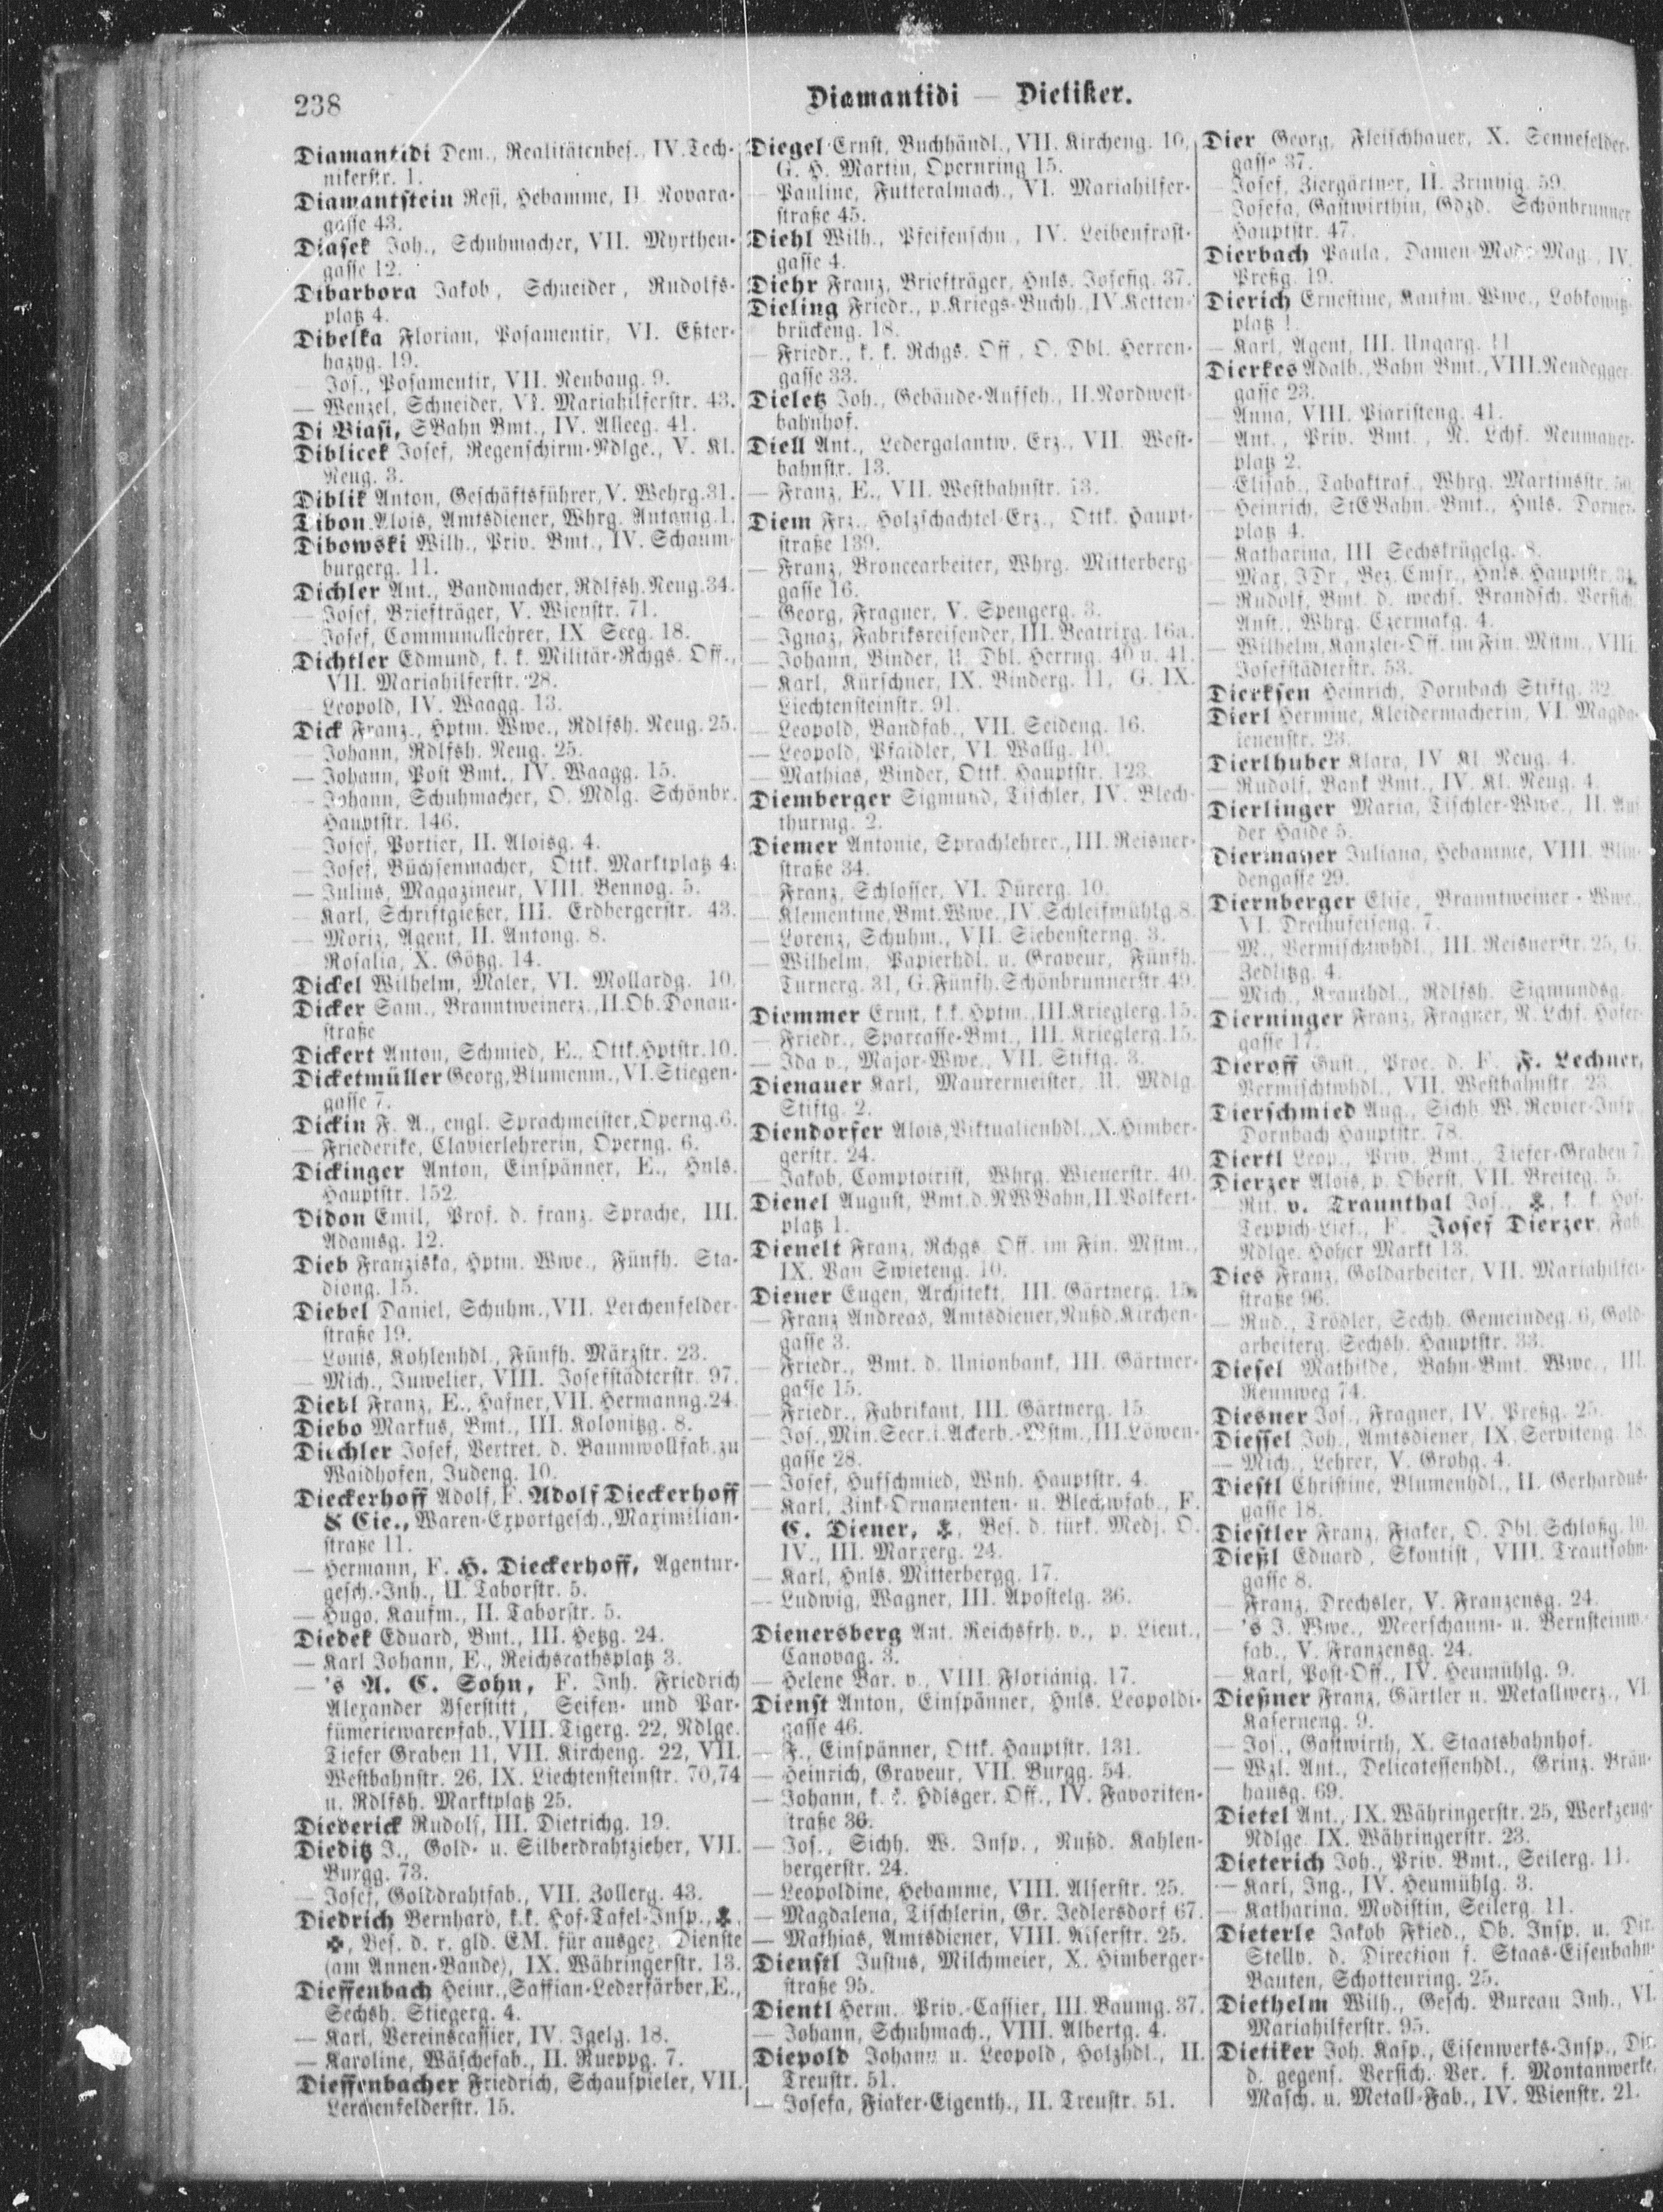 238
Diamantidi — Dietiker.
Diamantidi Dem., Realitätenbes., IV. Tech-
nikerstr. 1.
Diamantstein Resi, Hebamme, II. Novara-
gasse 43.
Diasek Joh., Schuhmacher, VII. Myrthen-
gasse 12.
Dibarbora Jakob, Schneider, Rudolfs-
platz 4.
Dibelka Florian, Posamentir, VI. Eßter-
hazyg. 19.
— Jos., Posamentir, VII. Neubaug. 9.
— Wenzel, Schneider, VI. Mariahilferstr. 43.
Di Biasi, SBahn Bmt., IV. Alleeg. 41.
Diblicek Josef, Regenschirm-Ndlge., V. Kl.
Neug. 3.
Diblik Anton, Geschäftsführer, V. Wehrg. 31.
Dibon Alois, Amtsdiener, Whrg. Antonig. 1.
Dibowski Wilh., Priv. Bmt., IV. Schaum-
burgerg. 11.
Dichler Ant., Bandmacher, Rdlfsh. Neug. 34.
— Josef, Briefträger, V. Wienstr. 71.
— Josef, Communallehrer, IX. Seeg. 18.
Dichtler Edmund, k. k. Militär-Rchgs. Off.,
VII. Mariahilferstr. 28.
— Leopold, IV. Waagg. 13.
Dick Franz., Hptm. Wwe., Rdlfsh. Neug. 25.
— Johann, Rdlfsh. Neug. 25.
— Johann, Post Bmt., IV. Waagg. 15.
— Johann, Schuhmacher, O. Mdlg. Schönbr.
Hauptstr. 146.
— Josef, Portier, II. Aloisg. 4.
— Josef, Büchsenmacher, Ottk. Marktplatz 4.
— Julius, Magazineur, VIII. Bennog. 5.
— Karl, Schriftgießer, III. Erdbergerstr. 43.
— Moriz, Agent, II. Antong. 8.
— Rosalia, X. Götzg. 14.
Dickel Wilhelm, Maler, VI. Mollardg. 10.
Dicker Sam., Branntweinerz., II. Ob. Donau-
straße
Dickert Anton, Schmied, E., Ottk. Hptstr. 10.
Dicketmüller Georg, Blumenm., VI. Stiegen-
gasse 7.
Dickin F. A., engl. Sprachmeister, Operng. 6.
— Friederike, Clavierlehrerin, Operng. 6.
Dickinger Anton, Einspänner, E., Hnls.
Hauptstr. 152.
Didon Emil, Prof. d. franz. Sprache, III.
Adamsg. 12.
Dieb Franziska, Hptm. Wwe., Fünfh. Sta-
diong. 15.
Diebel Daniel, Schuhm., VII. Lerchenfelder-
straße 19.
— Louis, Kohlenhdl., Fünfh. Märzstr. 23.
— Mich., Juwelier, VIII. Josefstädterstr. 97.
Diebl Franz, E., Hafner, VII. Hermanng. 24.
Diebo Markus, Bmt., III. Kolonitzg. 8.
Diechler Josef, Vertret. d. Baumwollfab. zu
Waidhofen, Judeng. 10.
Dieckerhoff Adolf, F. Adolf Dieckerhoff
& Cie., Waren-Exportgesch., Maximilian-
straße 11.
— Hermann, F. H. Dieckerhoff, Agentur-
gesch.-Inh., II. Taborstr. 5.
— Hugo, Kaufm., II. Taborstr. 5.
Diedek Eduard, Bmt., III. Hetzg. 24.
— Karl Johann, E., Reichsrathsplatz 3.
— 's A. C. Sohn, F. Inh. Friedrich
Alexander Yserstitt, Seifen- und Par-
fümeriewarenfab., VIII. Tigerg. 22, Ndlge.
Tiefer Graben 11, VII. Kircheng. 22, VII.
Westbahnstr. 26, IX. Liechtensteinstr. 70, 74
u. Rdlfsh. Marktplatz 25.
Diederick Rudolf, III. Dietrichg. 19.
Dieditz J., Gold- u. Silberdrahtzieher, VII.
Burgg. 73.
— Josef, Golddrahtfab., VII. Zollerg. 43.
Diedrich Bernhard, k.k. Hof-Tafel-Insp.,
Bes. d. r. gld. EM. für ausgez. Dienste
(am Annen-Bande), IX. Währingerstr. 13.
Dieffenbach Heinr., Saffian-Lederfärber, E.,
Sechsh. Stiegerg. 4.
— Karl, Vereinscassier, IV. Igelg. 18.
— Karoline, Wäschefab., II. Rueppg. 7.
Dieffenbacher Friedrich, Schauspieler, VII.
Lerchenfelderstr. 15.
Diegel Ernst, Buchhändl., VII. Kircheng. 10,
G. H. Martin, Opernring 15.
— Pauline, Futteralmach., VI. Mariahilfer-
straße 45.
Diehl Wilh., Pfeifenschn., IV. Leibenfrost-
gasse 4.
Diehr Franz, Briefträger, Hnls. Josefig. 37.
Dieling Friedr., p. Kriegs-Buchh., IV. Ketten-
brückeng. 18.
— Friedr., k. k. Rchgs. Off., O. Dbl. Herren-
gasse 33.
Dieletz Joh., Gebäude-Aufseh., II. Nordwest-
bahnhof.
Diell Ant., Ledergalantw. Erz., VII. West-
bahnstr. 13.
— Franz, E., VII. Westbahnstr. 13.
Diem Frz., Holzschachtel-Erz., Ottk. Haupt-
straße 139.
— Franz, Broncearbeiter, Whrg. Mitterberg-
gasse 16.
— Georg, Fragner, V. Spengerg. 3.
— Ignaz, Fabriksreisender, III. Beatrixg. 16a.
— Johann, Binder, U. Dbl. Herrng. 40 u. 41.
— Karl, Kürschner, IX. Binderg. 11, G. IX.
Liechtensteinstr. 91.
— Leopold, Bandfab., VII. Seideng. 16.
— Leopold, Pfaidler, VI. Wallg. 10.
— Mathias, Binder, Ottk. Hauptstr. 123.
Diemberger Sigmund, Tischler, IV. Blech-
thurmg. 2.
Diemer Antonie, Sprachlehrer., III. Reisner-
straße 34.
— Franz, Schlosser, VI. Dürerg. 10.
— Klementine, Bmt. Wwe., IV. Schleifmühlg. 8.
— Lorenz, Schuhm., VII. Siebensterng. 3.
— Wilhelm, Papierhdl. u. Graveur, Fünfh.
Turnerg. 31, G. Fünfh. Schönbrunnerstr. 49.
Diemmer Ernst, k.k. Hptm., III. Krieglerg. 15.
— Friedr., Sparcasse-Bmt., III. Krieglerg. 15.
— Ida v., Major-Wwe., VII. Stiftg. 3.
Dienauer Karl, Maurermeister, U. Mdlg.
Stiftg. 2.
Diendorfer Alois, Viktualienhdl., X. Himber-
gerstr. 24.
— Jakob, Comptoirist, Whrg. Wienerstr. 40.
Dienel August, Bmt. d. NWBahn, II. Volkert-
platz 1.
Dienelt Franz, Rchgs. Off. im Fin. Mstm.,
IX. Van Swieteng. 10.
Diener Eugen, Architekt, III. Gärtnerg. 15.
— Franz Andreas, Amtsdiener, Nußd. Kirchen-
gasse 3.
— Friedr., Bmt. d. Unionbank, III. Gärtner-
gasse 15.
— Friedr., Fabrikant, III. Gärtnerg. 15.
— Jos., Min. Secr. i. Ackerb.-Mstm., III. Löwen-
gasse 28.
— Josef, Hufschmied, Wnh. Hauptstr. 4.
— Karl, Zink-Ornamenten- u. Blechwfab., F.
C. Diener, Bes. d. türk. Medj. O.
IV., III. Marxerg. 24.
— Karl, Hnls. Mitterbergg. 17.
— Ludwig, Wagner, III. Apostelg. 36.
Dienersberg Ant. Reichsfrh. v., p. Lieut.,
Canovag. 3.
— Helene Bar. v., VIII. Florianig. 17.
Dienst Anton, Einspänner, Hnls. Leopoldi-
gasse 46.
— F., Einspänner, Ottk. Hauptstr. 131.
— Heinrich, Graveur, VII. Burgg. 54.
— Johann, k. k. Hdlsger. Off., IV. Favoriten-
straße 36.
— Jos., Sichh. W. Insp., Nußd. Kahlen-
bergerstr. 24.
— Leopoldine, Hebamme, VIII. Alserstr. 25.
— Magdalena, Tischlerin, Gr. Jedlersdorf 67.
— Mathias, Amtsdiener, VIII. Alserstr. 25.
Dienstl Justus, Milchmeier, X. Himberger-
straße 95.
Dientl Herm., Priv.-Cassier, III. Baumg. 37.
— Johann, Schuhmach., VIII. Albertg. 4.
Diepold Johann u. Leopold, Holzhdl., II.
Treustr. 51.
— Josefa, Fiaker-Eigenth., II. Treustr. 51.
Dier Georg, Fleischhauer, X. Sennefelder-
gasse 37.
— Josef, Ziergärtner, II. 59.
— Josefa, Gastwirthin, Gdzd. Schönbrunner
Hauptstr. 47.
Dierbach Paula, Damen-Mode-Mag., IV.
Preßg. 19.
Dierich Ernestine, Kaufm. Wwe., Lobkowitz-
platz 1.
— Karl, Agent, III. Ungarg. 11
Dierkes Adalb., Bahn Bmt., VIII. Neudegger-
gasse 23.
— Anna, VIII. Piaristeng. 41.
— Ant., Priv. Bmt., N. Lchf. Neumayer-
platz 2.
— Elisab., Tabaktraf., Whrg. Martinsstr. 50.
— Heinrich, StEBahn. Bmt., Hnls. Dorner-
platz 4.
— Katharina, III. Sechskrügelg. 8.
— Max, JDr., Bez. Cmsr., Hnls. Hauptstr. 34.
— Rudolf, Bmt. d. wechs. Brandsch. Versich.
Anst., Whrg. Czermakg. 4.
— Wilhelm, Kanzlei-Off. im Fin. Mstm., VIII.
Josefstädterstr. 53.
Dierksen Heinrich, Dornbach Stiftg. 32.
Dierl Hermine, Kleidermacherin, VI. Magda-
lenenstr. 23.
Dierlhuber Klara, IV. Kl. Neug. 4.
— Rudolf, Bank Bmt., IV. Kl. Neug. 4.
Dierlinger Maria, Tischler-Wwe., II. Auf
der Haide 5.
Diermayer Juliana, Hebamme, VIII. Blin-
dengasse 29.
Diernberger Elise, Branntweiner-Wwe.,
VI. Dreihufeiseng. 7.
— M., Vermischtwhdl., III. Reisnerstr. 25, G.
Zedlitzg. 4.
— Mich., Krauthdl., Rdlfsh. Sigmundsg.
Dierninger Franz, Fragner, N. Lchf. Hofer-
gasse 17.
Dieroff Gust., Proc. d. F. F. Lechner,
Vermischtwhdl., VII. Westbahnstr. 23.
Dierschmied Aug., Sichh. W. Revier-Insp.,
Dornbach Hauptstr. 78.
Diertl Leop., Priv. Bmt., Tiefer-Graben 7.
Dierzer Alois, p. Oberst, VII. Breiteg. 5.
— Rit. v. Traunthal Jos., k. k. Hof-
Teppich-Lief., F. Josef Dierzer, Fab.
Ndlge. Hoher Markt 13.
Dies Franz, Goldarbeiter, VII. Mariahilfer-
straße 96.
— Rud., Trödler, Sechh. Gemeindeg. 6, Gold-
arbeiterg. Sechsh. Hauptstr. 33.
Diesel Mathilde, Bahn-Bmt. Wwe., III.
Rennweg 74.
Diesner Jos., Fragner, IV. Preßg. 25.
Diessel Joh., Amtsdiener, IX. Serviteng. 18.
— Mich., Lehrer, V. Grohg. 4.
Diestl Christine, Blumenhdl., II. Gerhardus-
gasse 18.
Diestler Franz, Fiaker, O. Dbl. Schloßg. 10.
Dießl Eduard, Skontist, VIII. Trautsohn-
gasse 8.
— Franz, Drechsler, V. Franzensg. 24.
— 's J. Wwe., Meerschaum- u. Bernsteinw.-
fab., V. Franzensg. 24.
— Karl, Post-Off., IV. Heumühlg. 9.
Dießner Franz, Gürtler u. Metallwerz., VI.
Kaserneng. 9.
— Jos., Gastwirth, X. Staatsbahnhof.
— Wzl. Ant., Delicatessenhdl., Grinz. Bräu-
hausg. 69.
Dietel Ant., IX. Währingerstr. 25, Werkzeug-
Ndlge. IX. Währingerstr. 23.
Dieterich Joh., Priv. Bmt., Seilerg. 11.
— Karl, Ing., IV. Heumühlg. 3.
— Katharina, Modistin, Seilerg. 11.
Dieterle Jakob Fried., Ob. Insp. u. Dir.
Stellv. d. Direction f. Staas-Eisenbahn-
Bauten, Schottenring. 25.
Diethelm Wilh., Gesch. Bureau Inh., VI.
Mariahilferstr. 95.
Dietiker Joh. Kasp., Eisenwerks-Insp., Dir.
d. gegens. Versich. Ver. f. Montanwerke,
Masch. u. Metall-Fab., IV. Wienstr. 21.